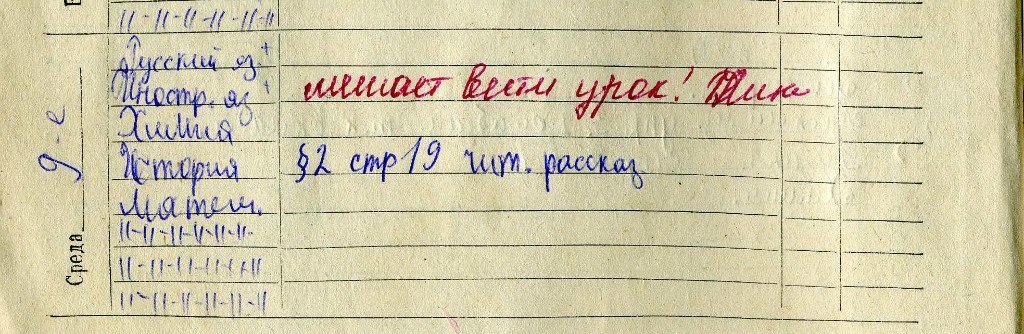 11-11-11-11-11-11
Русский яз. +
Иностр. яз + мешает вести урок!
Химия
История §2 стр 19 чит. рассказ
Матем.
11-11-11-11-11-11-
11-11-11-11-11-11
11-11-11-11-11-11
Среда 9-е